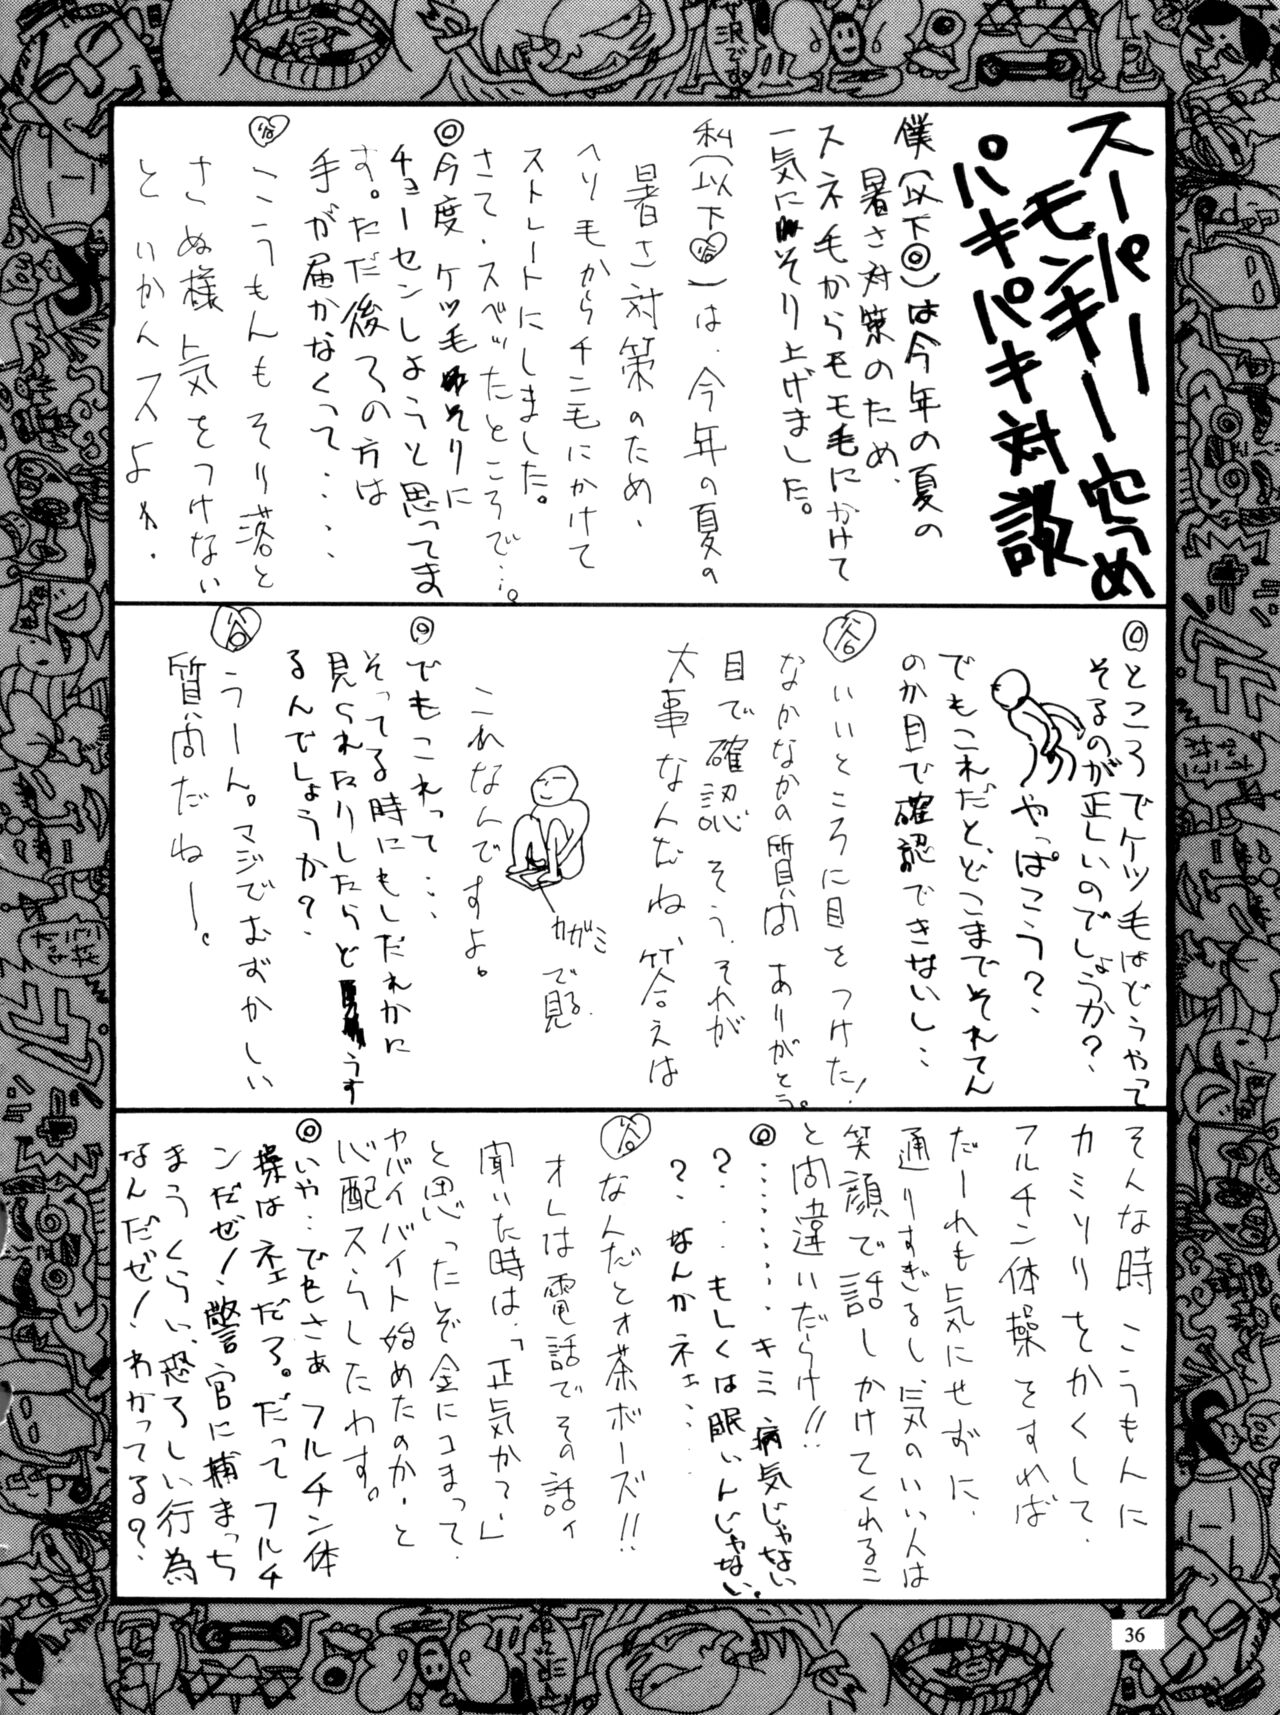 スーパーモンキー穴つめ
パキパキ対談
僕(以下◎)は今年の夏の
暑さ対策のため、
スネ毛からモモ毛にかけて
一気にそり上げました。
私(以下谷)は、今年の夏の
暑さ対策のため、
ヘソ毛からチン毛にかけて
ストレートにしました。
さて、スベッたところで…。
◎今度ケツ毛そりに
チョーセンしようと思ってま
す。ただ後ろの方は
手が届かなくって……
谷 こうもんもそり落と
さぬ様気をつけない
といかんスよネ.
◎ところでケツ毛はどうやって
そるのが正しいのでしょうか?
やっぱこう?、
でもこれだと、どこまでそれてん
のか目で確認できないし…
谷 いいところに目をつけた!
なかなかの質問ありがとう。
目で確認そう、それが
大事なんだね、答えは
カガミで見る
これなんですよ。
◎でもこれって…
そってる時にもしだれかに
見られたりしたらどうす
るんでしょうか?
谷 うーん。マジでむずかしい
質問だねー。
そんな時こうもんに
カミソリをかくして、
フルチン体操をすれば
だーれも気にせずに、
通りすぎるし、気のいい人は
笑顔で話しかけてくれるこ
と間違いだらけ!!
◎……、キミ病気じゃない
?…もしくは眠いんじゃない
?、なんかネェ…
谷 なんだとォ茶ボーズ!!
オレは電話でその話ィ
聞いた時は、「正気か?」
と思ったぞ金にコまって、
ヤバイバイト始めたのか、と
心配スらしたわす。
◎いや…でもさぁフルチン体
操はネェだろ。だってフルチ
ンだぜ!警官に捕まっち
まうくらい、恐ろしい行為
なんだぜ!わかってる?
36